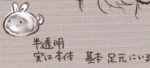 半透明
実は本体 基本足元にいる